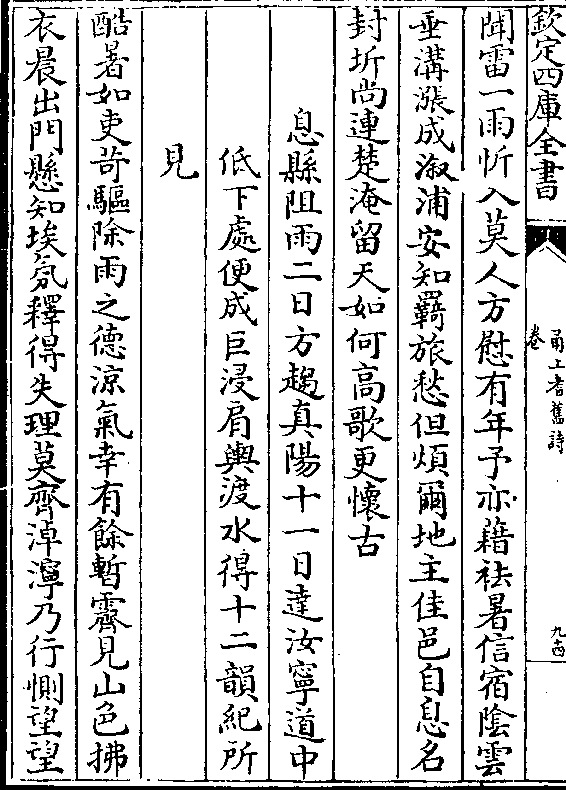 欽定四庫全書
甬上耆舊詩
卷
九十四
聞雷一雨忻入莫人方慰有年予亦藉祛暑信宿陰雲
垂溝漲成溆浦安知羇旅愁但煩爾地主佳邑自息名
封圻尚連楚淹留天如何高歌更懷古
息縣阻雨二日方趨真陽十一日達汝寧道中
低下處便成巨浸肩輿渡水得十二韻紀所
見
酷暑如吏苛驅除雨之德涼氣幸有餘暫霽見山色拂
衣晨出門懸知埃氛釋得失理莫齊淖濘乃行惻望望